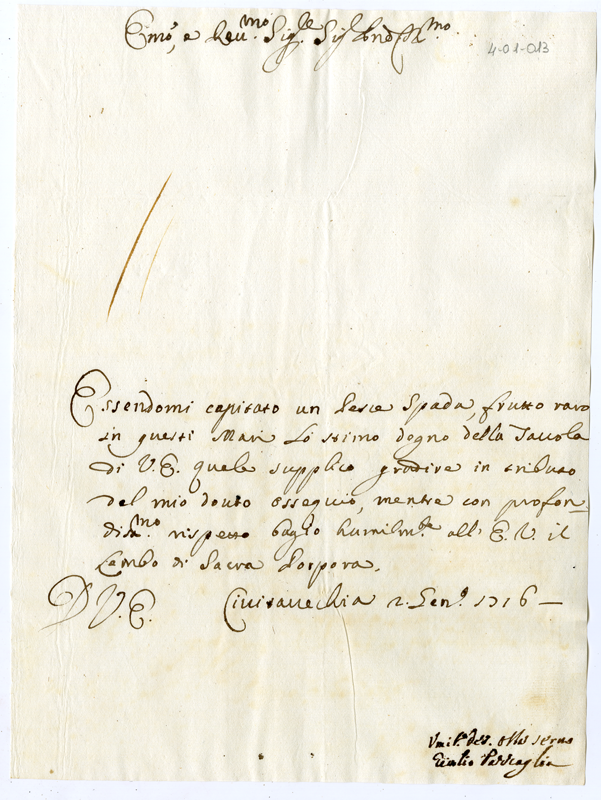 Em̃o, e Reu.mo Sig.re Sig.re Pnõe
4-01-013
Essendomi capitato un Pesce Spada, frutto raro
in questi Mari Lo stimo degno della Tauola
di V.E. quale supplico gradire in tributo
del mio douto ossequio, mentre con profon-
diss.mo rispetto bagio humilm.te all' E.V. il
Lembo di Sacra Porpora.
D V. E. Ciuitauechia 2. Gen.o 1716 —
Vmil.o deu. serue
Giulio Pasicaglia